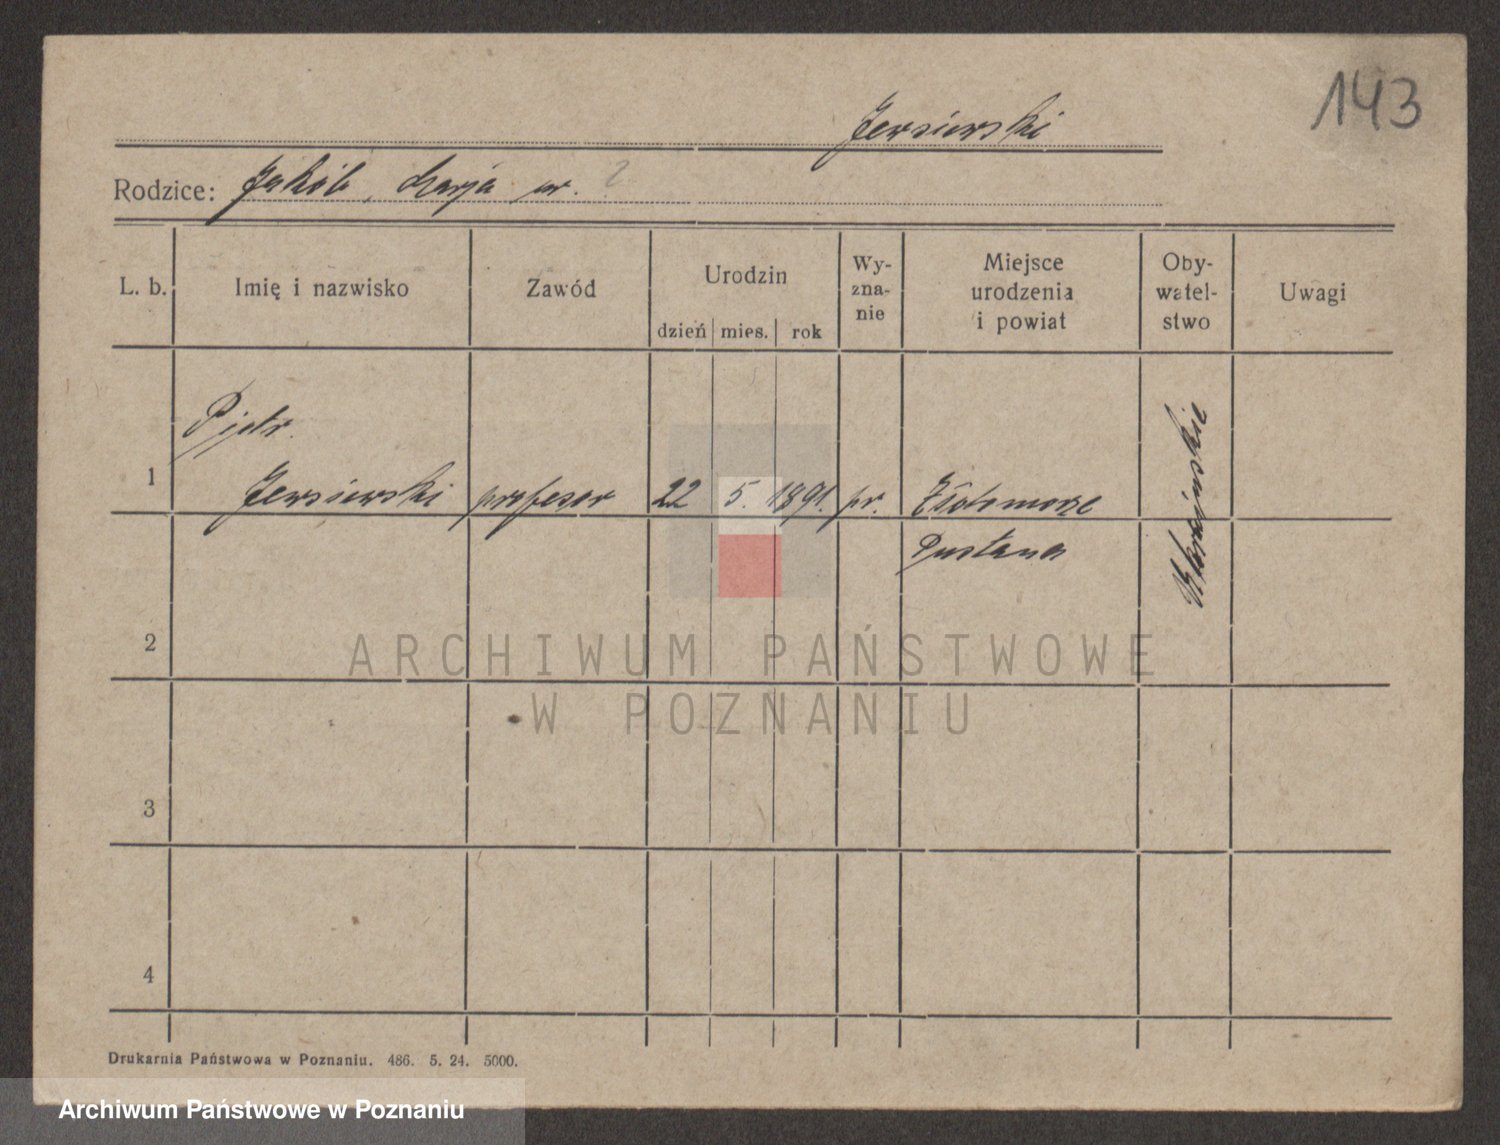 143
Jersierski
Rodzice: Jakób, ur. ?
L. b. Imię i nazwisko Zawód Urodzin dzień mies. rok Wy-zna-nie Miejsce urodzenia i powiat Oby-watel-stwo Uwagi
Pjotr
1 Jersierski profesor 22 5. 1891. pr. Złotomorze
Pustana
Ukraińskie
2
ARCHIWUM PAŃSTWOWE
W POZNANIU
3
4
Drukarnia Państwowa w Poznaniu. 486. 5. 24. 5000.
Archiwum Państwowe w Poznaniu